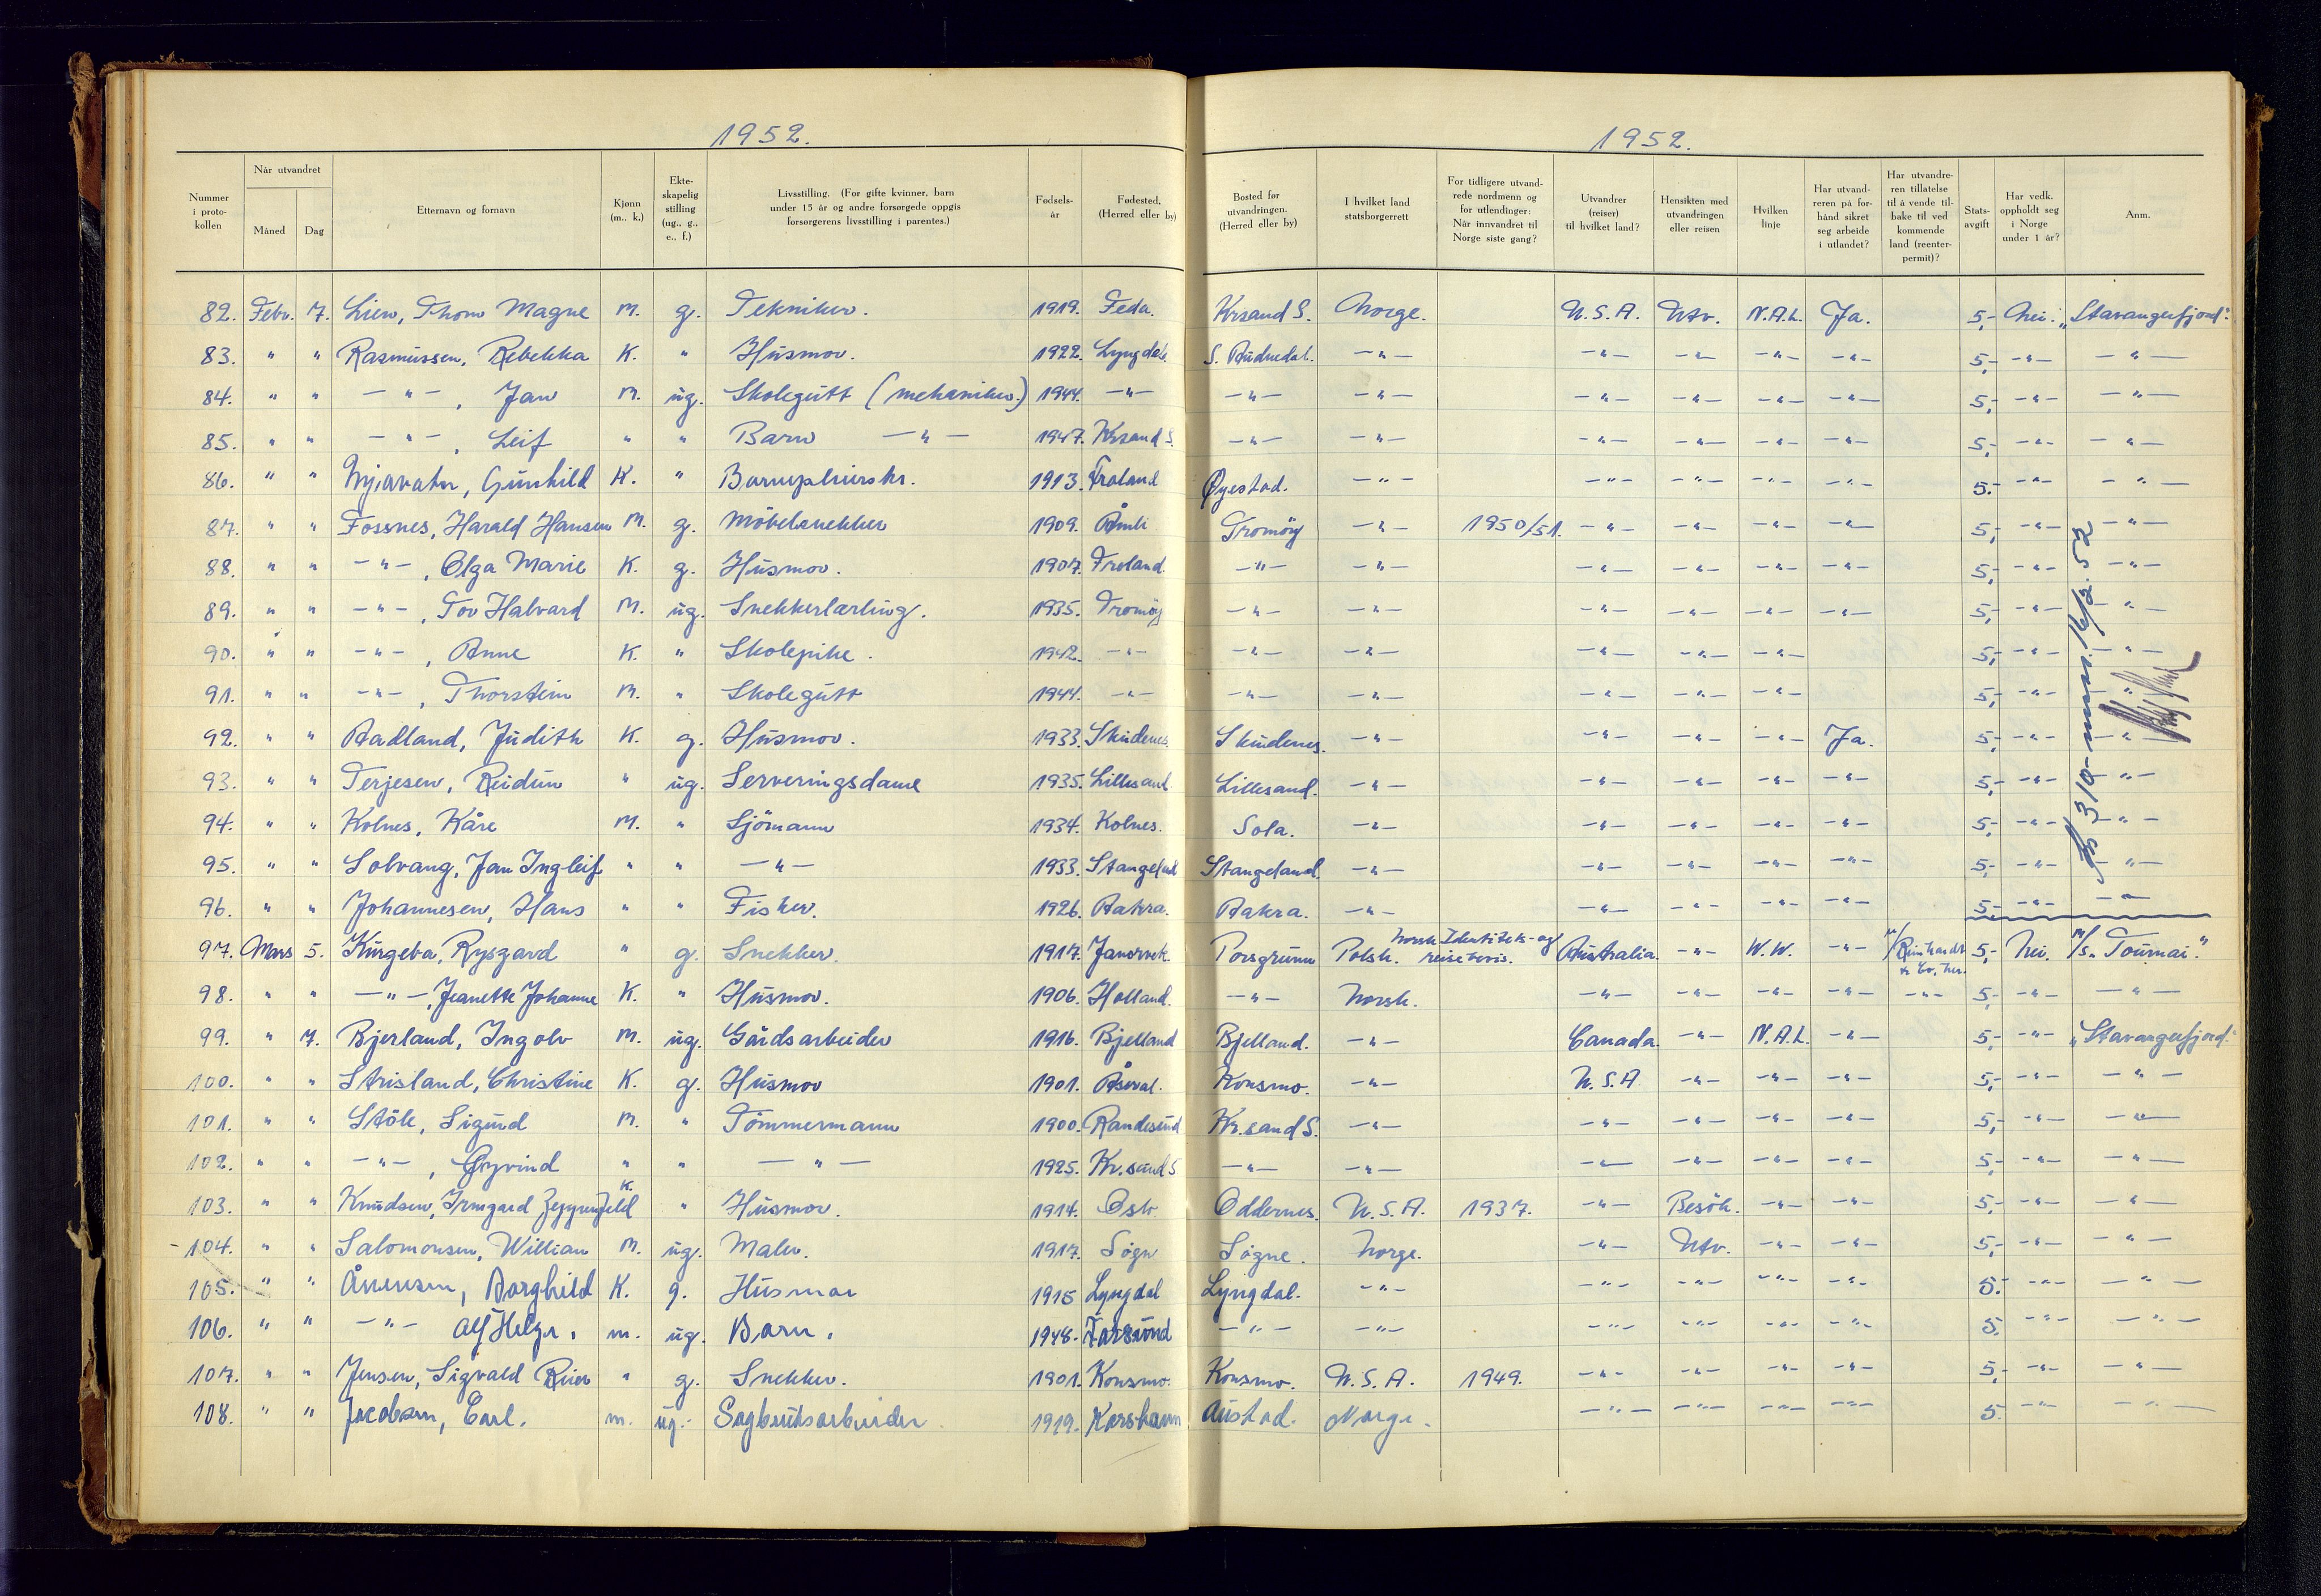 1952.
1952.
Nummer i proto- kollen | Når utvandret Måned Dag | Etternavn og fornavn | Kjønn (m.. k.) | Ekte- skapelig stilling (ug.. g.. e.. f.) | Livsstilling. (For gifte kvinner, barn under 15 år og andre forsørgede oppgis forsørgerens livsstilling i parentes.) | Fødsels- år | Fødested. (Herred eller by) | Bosted før utvandringen. (Herred eller by) | I hvilket land statsborgerrett | For tidligere utvand- rede nordmenn og for utlendinger: Når innvandret til Norge siste gang? | Utvandrer (reiser) til hvilket land? | Hensikten med utvandringen eller reisen | Hvilken linje | Har utvand- reren på for- hånd sikret seg arbeide i utlandet? | Har utvandre- ren tillatelse til å vende til- bake til ved kommende land (reenter- permit)? | Stats- avgift | Har vedk. oppholdt seg i Norge under 1 år? | Anm.
82. Febr. 7. Lien, Thom Magne M. g. Tekniker. 1919. Feda. Krsand S. Norge. U.S.A. Utv. N.A.L. Ja. 5,- Nei. „Stavangerfjord"
83. " " Rasmussen, Rebekka K. " Husmor. 1922. Lyngdal. S. Audnedal. -"- -"- -"- -"- -"- 5,- -"- -"-
84. " " -"-, Jan M. ug. Skolegutt (mekaniker.) 1944. -"- -"- -"- -"- -"- -"- -"- 5,- -"- -"-
85. " " -"-, Leif " " Barn -"- 1947. Krsand S. -"- -"- -"- -"- -"- -"- 5,- -"- -"-
86. " " Gunhild K. " 1913. Froland Øyestad. -"- -"- -"- -"- -"- 5.- -"- -"-
87. " " Fossnes, Harald Hansen M. g. Möbelsnekker 1909. Åmli Tromöy -"- 1950/51. -"- -"- -"- -"- 5,- -"- -"-
88. " " -"-, Olga Marie K. g. Husmor. 1907. Froland. -"- -"- -"- -"- -"- -"- 5,- -"- -"-
89. " " -"-, Tov Halvard M. ug. Snekkerlærling. 1935. Tromöy -"- -"- -"- -"- -"- -"- 5,- -"- -"-
90. " " -"-, Anne K. " Skolepike. 1942. -"- -"- -"- -"- -"- -"- 5,- -"- -"-
91. " " -"-, Thorstein M. " Skolegutt 1944. -"- -"- -"- -"- -"- -"- 5,- -"- -"-
92. " " Aadland, Judith K. g. Husmor. 1933. Skudenes. Skudenes. -"- -"- -"- -"- Ja. 5,- -"- -"-
93. " " Terjesen, Reidun " ug. Serveringsdame 1935. Lillesand Lillesand. -"- -"- -"- -"- -"- 5,- -"- -"-
94. " " Kolnes, Kåre M. " Sjömann 1934. Kolnes. Sola. -"- -"- -"- -"- -"- 5,- -"- -"-
95. " " Solvang, Jan Ingleif " " -"- 1933. Stangeland Stangeland. -"- -"- -"- -"- -"- 5,- -"- -"-
96. " " Johannesen, Hans " " Fisker. 1926. Aakra. Aakra. -"- -"- -"- -"- -"- 5,- -"- -"-
97. Mars 5. Kurgeba, Rysgard " g. Snekker. 1917. Porsgrunn Polsk. Norsk Identitets- og reisebevis. Australia. -"- W.W. -"- Reinhardt & Co. 5,- Nei. M/S. „Tournai."
98. " " -"-, Jeanette Johanne K. " Husmor. 1906. Holland. -"- Norsk. -"- -"- -"- -"- -"- 5,- -"- -"-
99. " 7. Bjerland, Ingolv M. ug. Gårdsarbeider 1916. Bjelland Bjelland. -"- Canada. -"- N.A.L. -"- 5,- -"- „Stavangerfjord."
100. " " Strisland, Christine K. g. Husmor 1901. Åseral. Konsmo. -"- U.S.A. -"- -"- -"- 5,- -"- -"-
101. " " Stöle, Sigurd M. " Tömmermann 1900. Randesund Kr.sand S. -"- -"- -"- -"- -"- 5,- -"- -"-
102. " " -"-, Øyvind " " -"- 1925. Kr.sund S -"- -"- -"- -"- -"- -"- 5,- -"- -"-
103. " " Knudsen, Irmgard Zeppenfeld K. " Husmor. 1914. Oslo. Oddernes. U.S.A. 1937. -"- Besök. -"- -"- 5,- -"- -"-
104. " " Salomonsen, William M. ug. Maler. 1917. Søgne Søgne. Norge. -"- Utv. -"- -"- 5,- -"- -"-
105. " " Borghild K. g. Husmor 1915 Lyngdal Lyngdal. -"- -"- -"- -"- -"- 5.- -"- -"-
106. " " -"- Alf Helge. m. ug. Barn. 1948. Farsund -"- -"- -"- -"- -"- -"- 5. -"- -"-
107. " " Jensen, Sigvald Reier " g. Snekker. 1901. Konsmo. Konsmo. U.S.A. 1949. -"- -"- -"- -"- 5,- -"- -"-
108. " " Jacobsen, Carl. m. ug. Sagbruksarbeider. 1919. Korshamn Austad. Norge. -"- -"- -"- -"- 5. -"- -"-